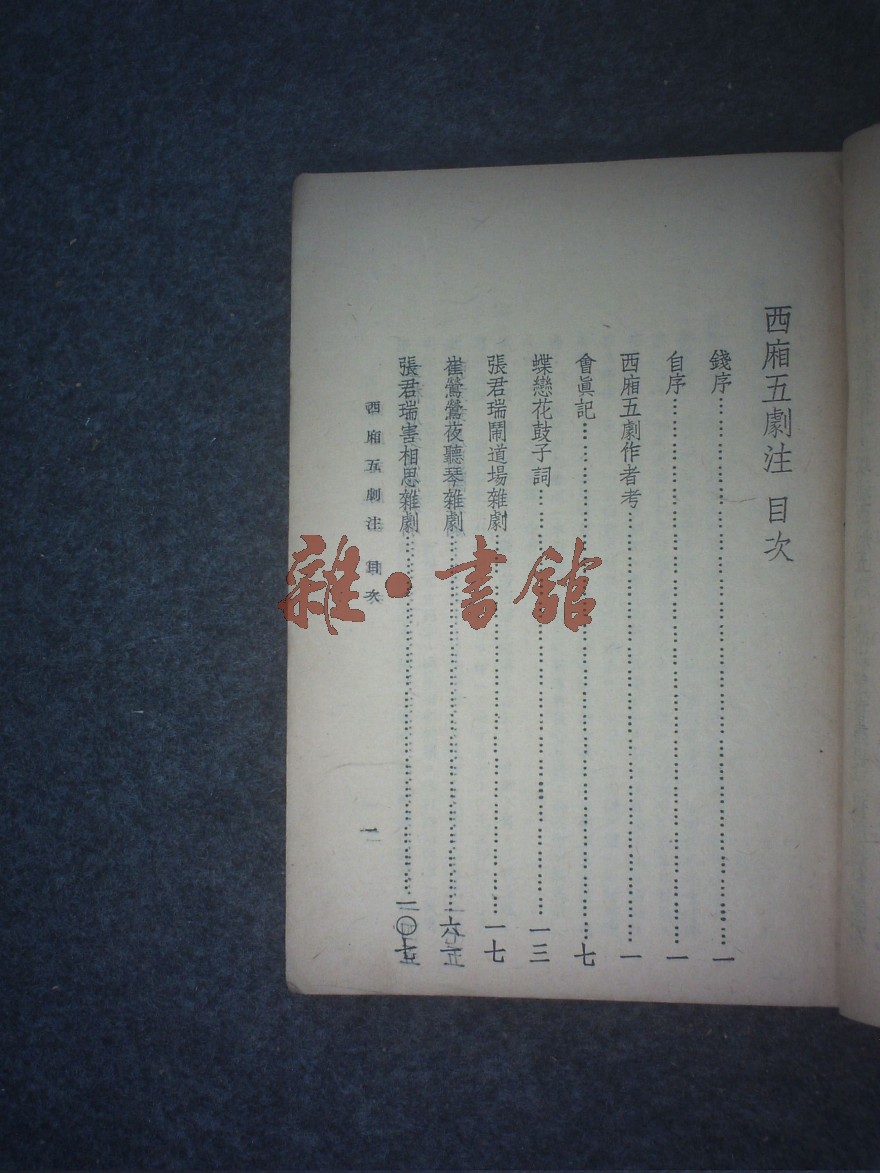 西廂五劇注 目次
錢序⋯⋯一
自序⋯⋯一
西廂五劇作者考⋯⋯一
會眞記⋯⋯七
蝶戀花鼓子詞⋯⋯一三
張君瑞鬧道場雜劇⋯⋯一七
崔鶯鶯夜聽琴雜劇⋯⋯
張君瑞害相思雜劇⋯⋯一〇七
西廂五劇注 目次
雜·書館